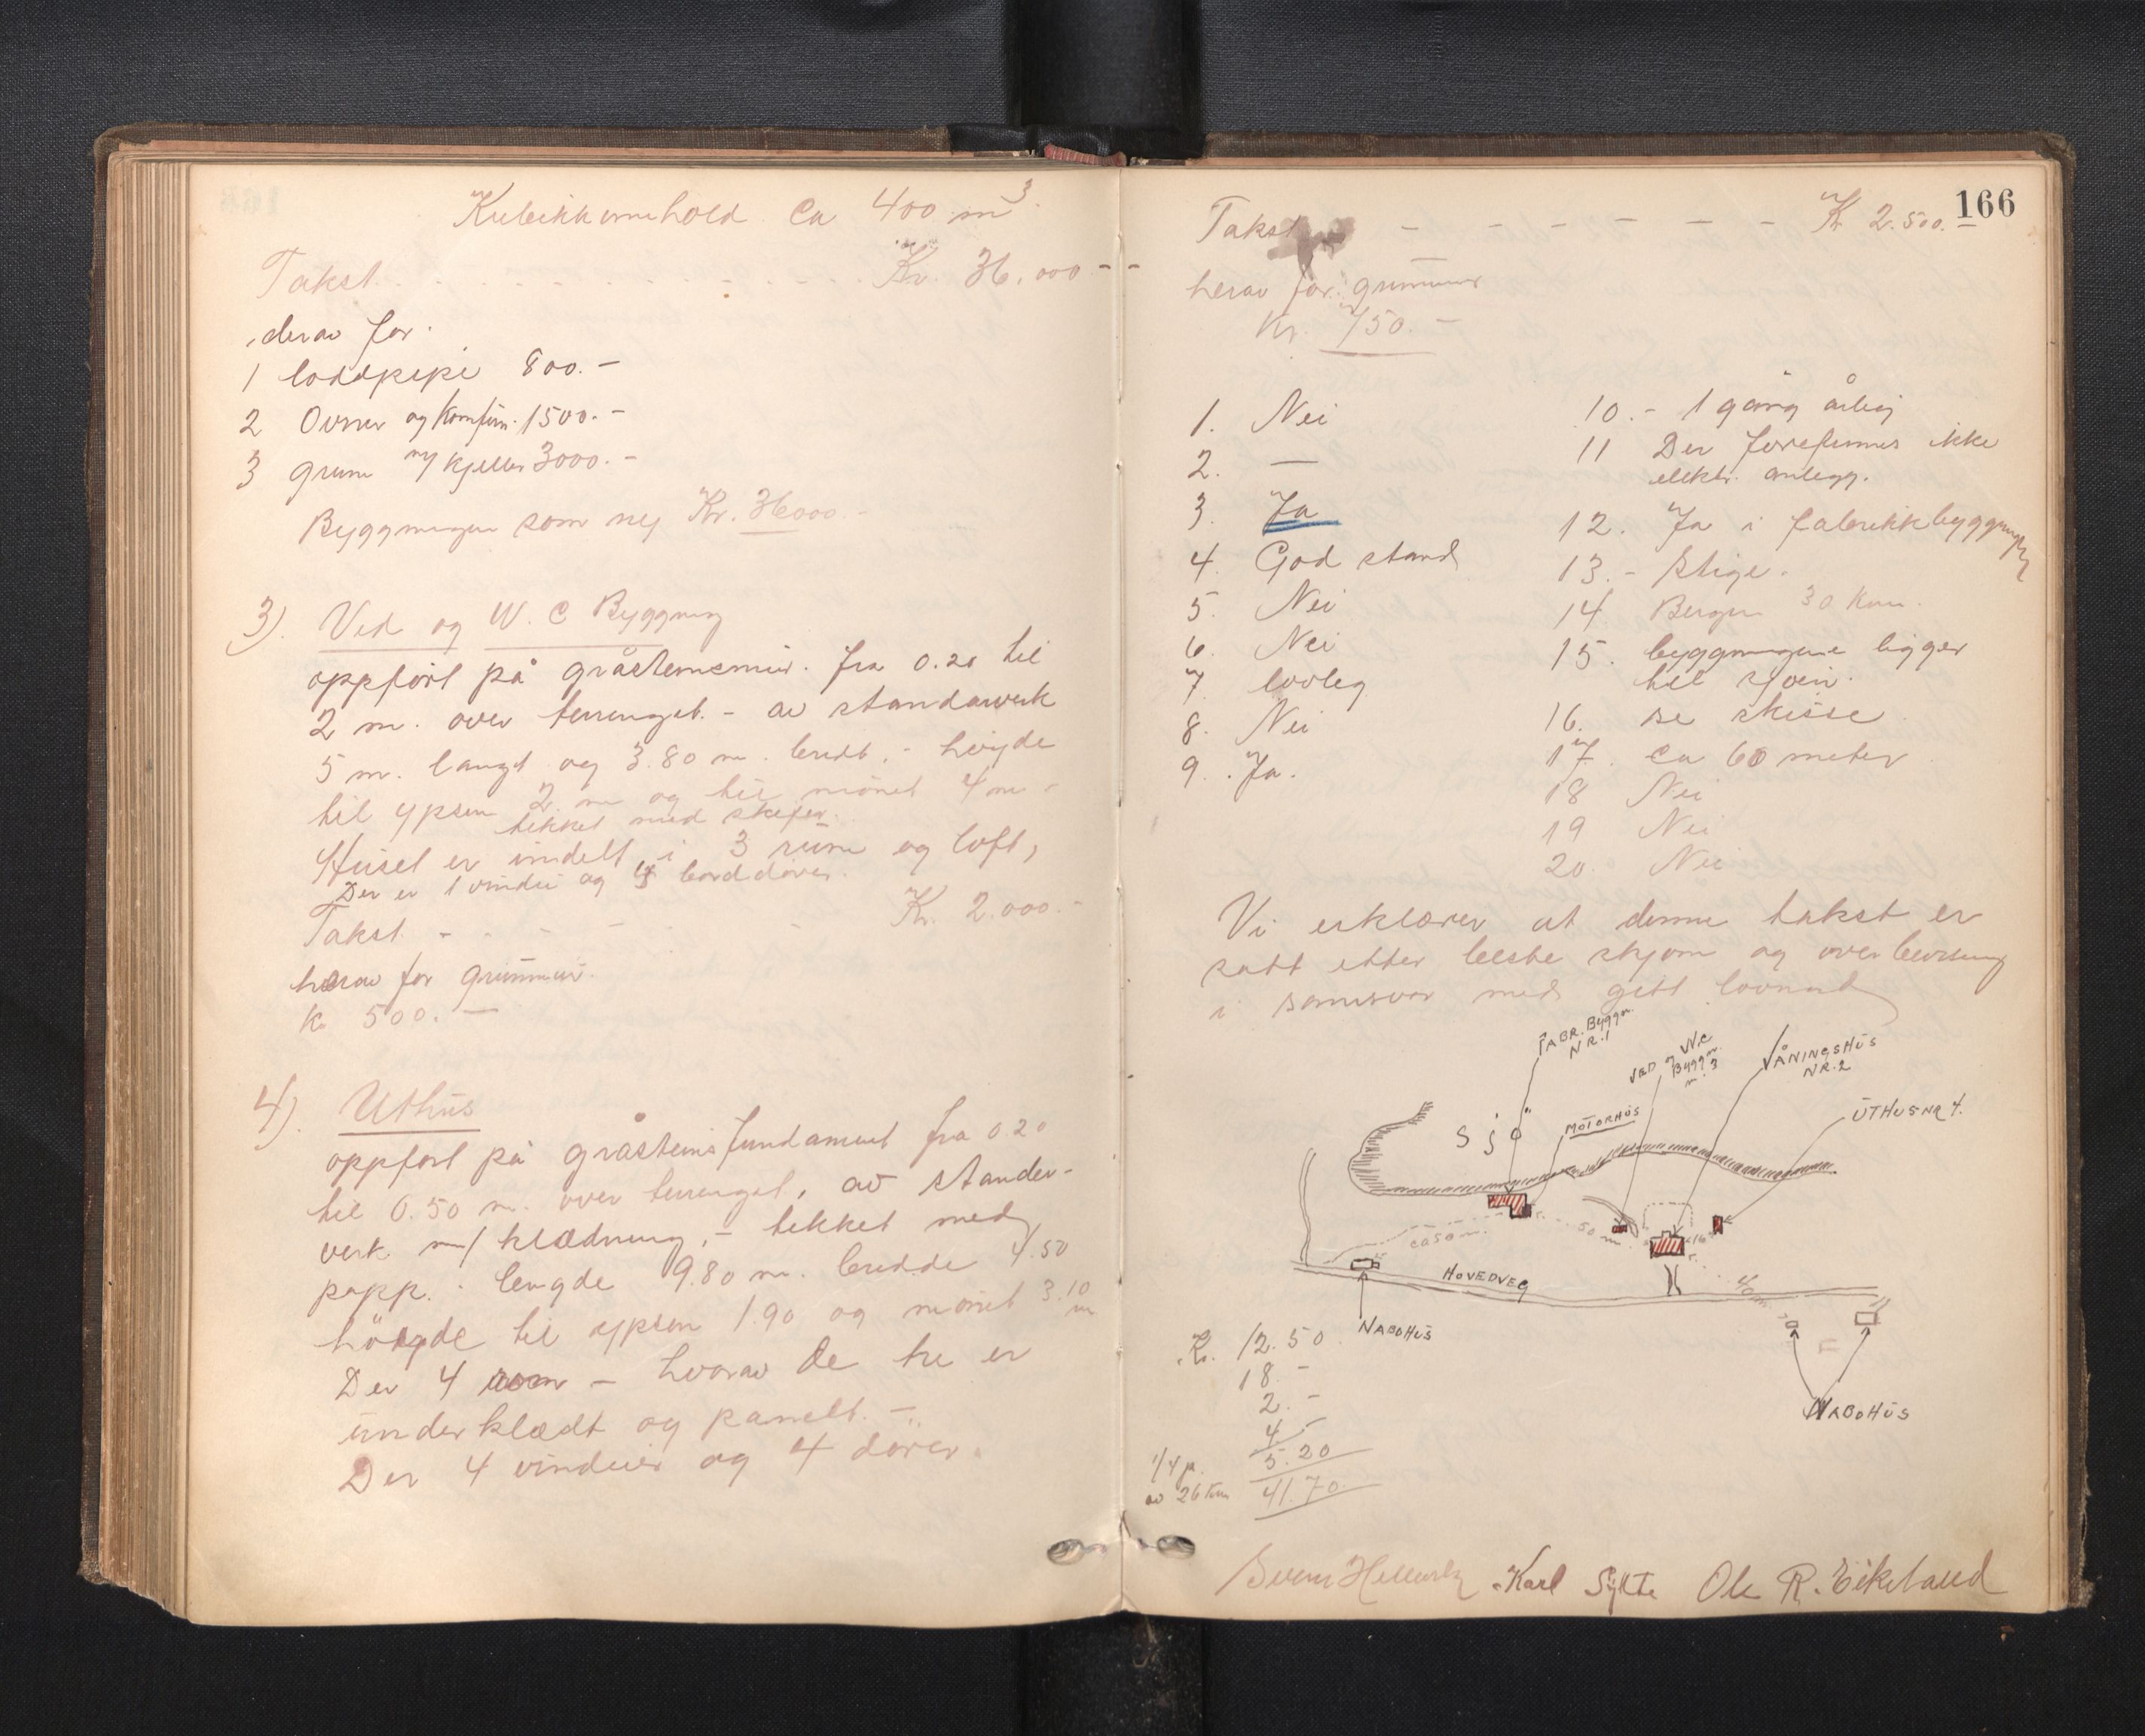 Kubikkinnhold Ca 400 m³.
Takst. - - - - - Kr. 36.000 - -
derav for.
1 loddpipe 800.-
2 Ovner og Komfür. 1500.-
3 grunn m/ kjeller 3000.-
Byggningen som ny Kr. 36000.-
3). Ved og W.C Byggning
oppfört på gråstensmür. fra 0.20 til
2 m. over terrenget. - av standarverk
5 m. langt og 3.80 m. bredt. - höyde
til ypsen 2 m og til mönet 4 m -
tekket med skifer.
Hüset er inndelt i 3 rüm og loft,
Der er 1 vindü og 4 borddörer.
Takst - - - - - Kr. 2.000.-
herav for grünnmür.
Kr 500. -
4). Uthüs
oppfört på gråsteinsfundament fra 0.20
til 0.50 m. over terrenget, av stander-
verk m/ klædning, - tekket med
papp. - lengde 9.80 m. bredde 4.50
höyde til ypsen 1.90 og mönet 3.10 m
Der 4 rom - hvorav de tre er
ünderklædt og panelt. -
Der 4 vindüer og 4 dörer.
166
Takst - - - - - - Kr 2.500. -
herav for grünnmür
Kr. 750. -
1. Nei
2. —
3. Ja
4. God stand
5. Nei
6. Nei
7 lovleg
8. Nei
9. Ja.
10. - 1 gång årleg
11 Der forefinnes ikke
elektr. anlegg.
12. Ja i fabrikkbyggning
13. - Stige.
14 Bergen 30 Km.
15. byggningene ligger
til sjöen.
16. se skisse
17. ca 60 meter
18 Nei
19 Nei
20. Nei
Vi erklærer at denne takst er
satt etter beste skjön og overbevisning
i samsvar med gitt lovnad
FABR. Byggn.
NR. 1
VED og Wc
Byggn.
nr. 3
VÅNINGSHÜS
NR. 2
ÜTHÜS NR 4.
Sjö
MOTORHÜS
ca 50 m.
50 m.
16
40 m.
HOVEDVEG
NABOHÜS
NABOHÜS
Kr. 12.50
18. -
2. -
4 -
5.20
1/4 p.
av 26 Km 41.70
Karl Sylte Ole R. Eikeland